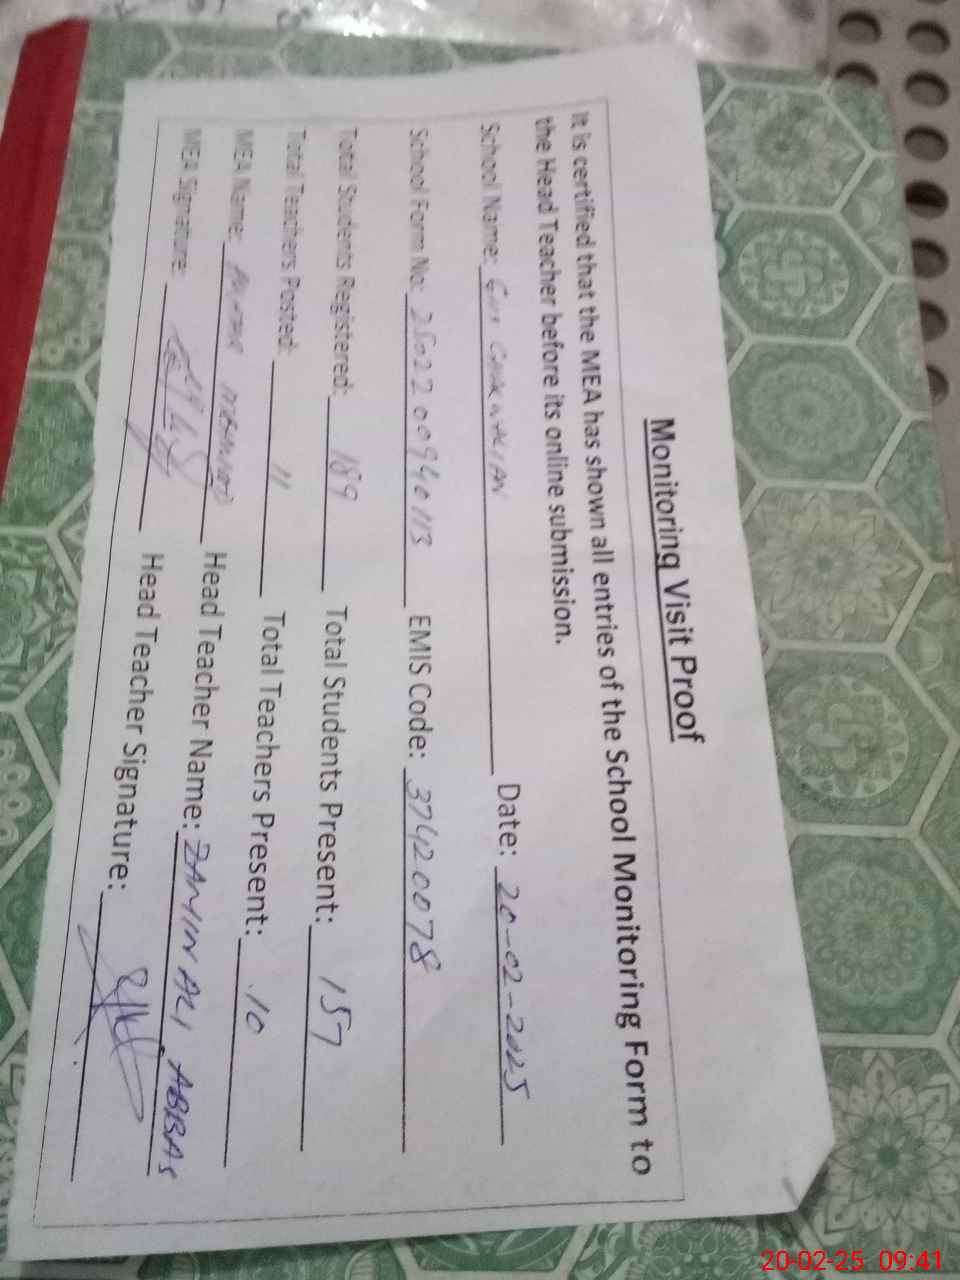 Monitoring Visit Proof
It is certified that the MEA has shown all entries of the School Monitoring Form to
the Head Teacher before its online submission.
School Name: Date: 20-02-2025
School Form No: 2502200940113 EMIS Code: 37420078
Total Students Registered: 189 Total Students Present: 157
Total Teachers Posted: 11 Total Teachers Present: 10
MEA Name: Head Teacher Name: ZAMIN ALI ABBAS
MEA Signature: Head Teacher Signature:
20-02-25 09:41